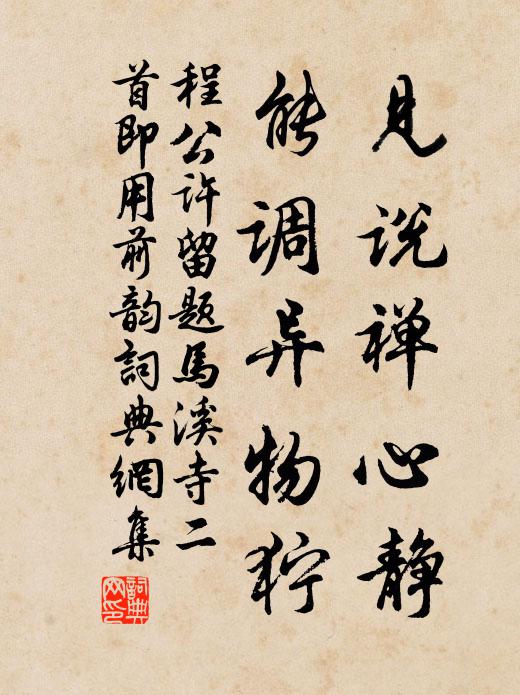 见说禅心静
能调异物狞
程公许留题馬溪寺二
首即用前韵詞典網集
詞典網印